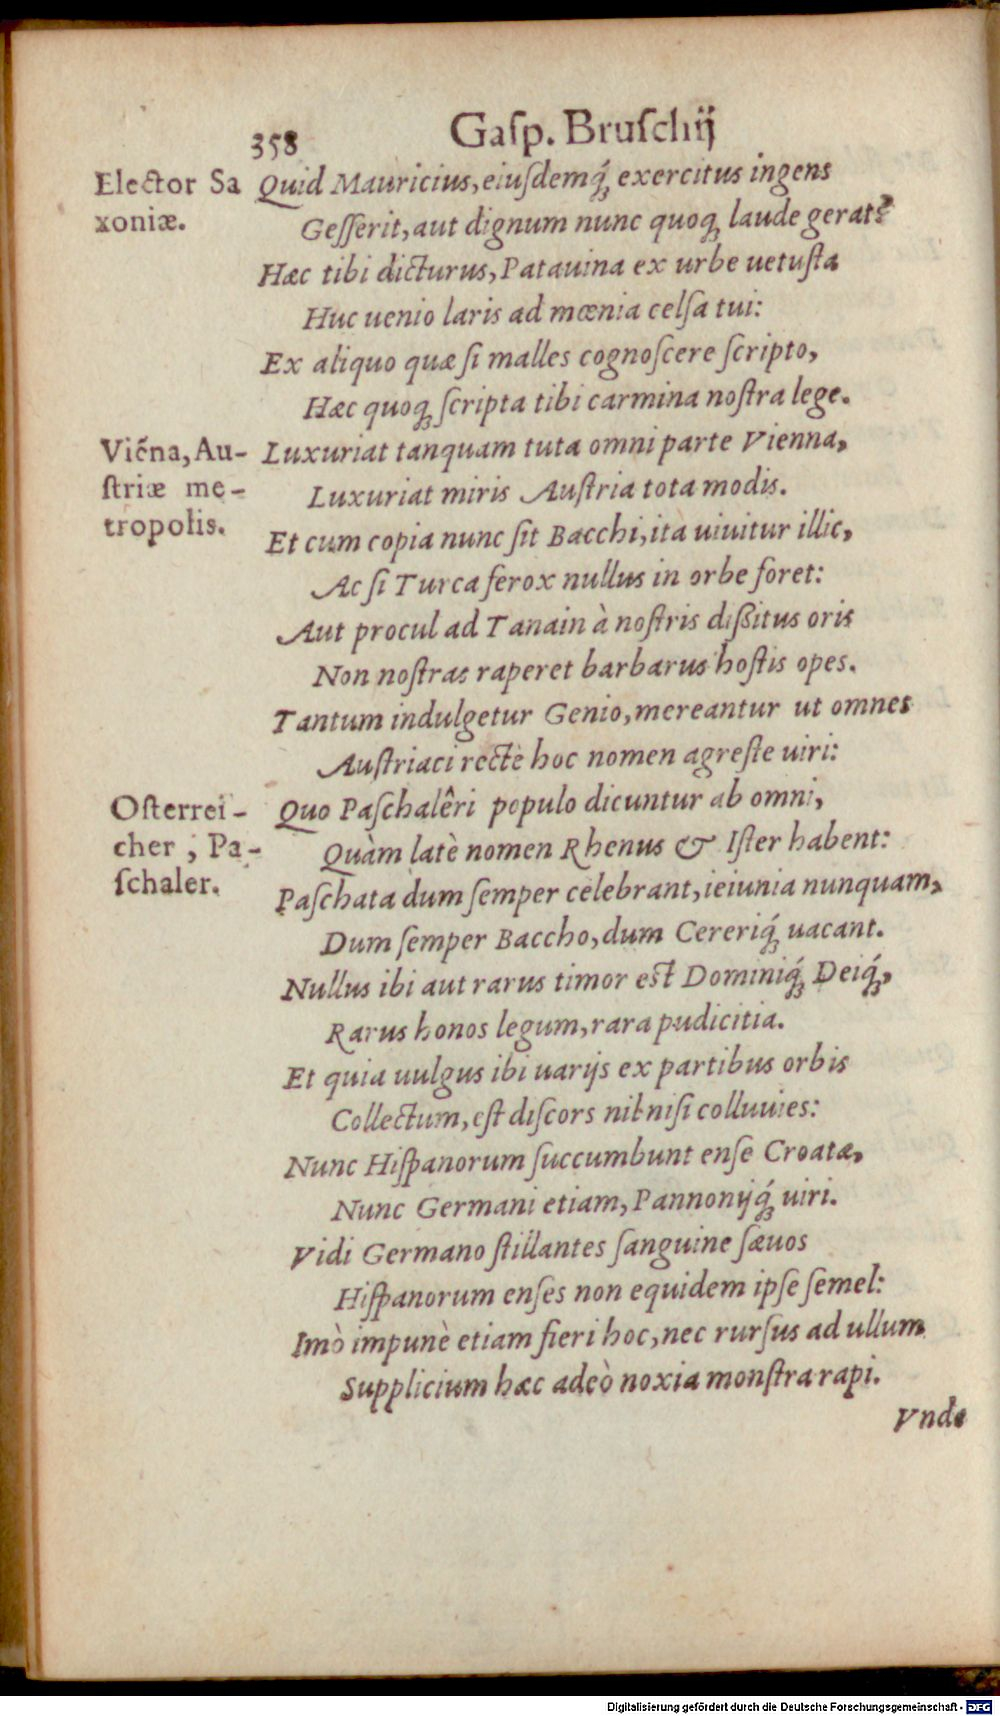 358
Gaſp. Bruſchij
Elector Sa
xoniæ.
Quid Mauricius, eiuſdemq́ꝫ exercitus ingens
Geſſerit, aut dignum nunc quoqꝫ laude gerat?
Hæc tibi dicturus, Patauina ex urbe uetuſta
Huc uenio laris ad mœnia celſa tui:
Ex aliquo quæ ſi malles cognoſcere ſcripto,
Hæc quoqꝫ ſcripta tibi carmina noſtra lege.
Viẽna, Au-
ſtriæ me-
tropolis.
Luxuriat tanquam tuta omni parte Vienna,
Luxuriat miris Auſtria tota modis.
Et cum copia nunc ſit Bacchi, ita uiuitur illic,
Ac ſi Turca ferox nullus in orbe foret:
Aut procul ad Tanain à noſtris diſsitus oris
Non noſtras raperet barbarus hoſtis opes.
Tantum indulgetur Genio, mereantur ut omnes
Auſtriaci rectè hoc nomen agreſte uiri:
Oſterrei-
cher, Pa-
ſchaler.
Quo Paſchalêri populo dicuntur ab omni,
Quàm latè nomen Rhenus & Iſter habent:
Paſchata dum ſemper celebrant, ieiunia nunquam,
Dum ſemper Baccho, dum Cereriq́ꝫ uacant.
Nullus ibi aut rarus timor eſt Dominiq́ꝫ Deiq́ꝫ,
Rarus honos legum, rara pudicitia.
Et quia uulgus ibi uarijs ex partibus orbis
Collectum, eſt diſcors nil niſi colluuies:
Nunc Hiſpanorum ſuccumbunt enſe Croatæ,
Nunc Germani etiam, Pannonijq́ꝫ uiri.
Vidi Germano ſtillantes ſanguine ſæuos
Hiſpanorum enſes non equidem ipſe ſemel:
Imò impunè etiam fieri hoc, nec rurſus ad ullum
Supplicium hæc adeò noxia monſtra rapi.
Vnde
Digitalisierung gefördert durch die Deutsche Forschungsgemeinschaft - DFG